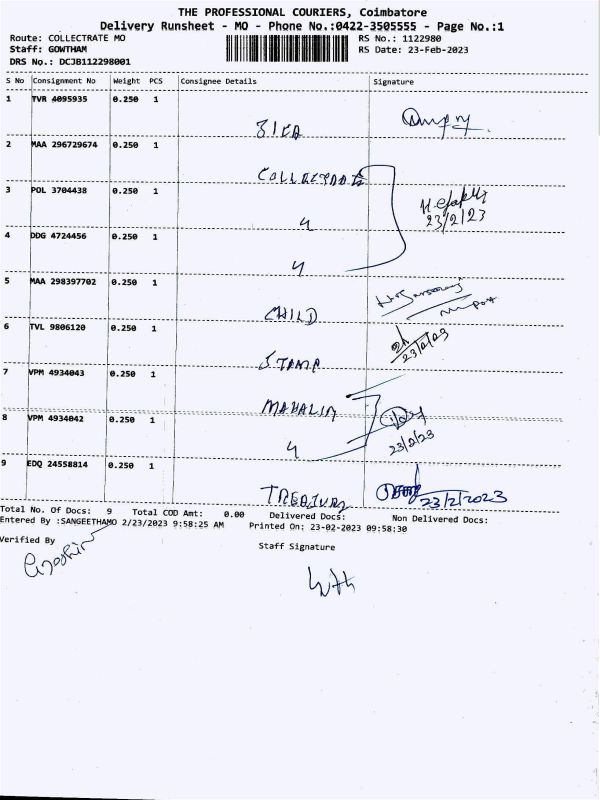 THE PROFESSIONAL COURIERS, Coimbatore
Delivery Runsheet - MO - Phone No.:0422-3505555 - Page No.:1
Route: COLLECTRATE MO RS No.: 1122980
Staff: GOWTHAM RS Date: 23-Feb-2023
DRS No.: DCJB112298001
S No Consignment No Weight PCS Consignee Details Signature
1 TVR 4095935 0.250 1
2 MAA 296729674 0.250 1
COLLECTRATE
3 POL 3704438 0.250 1
23/2/23
4 DDG 4724456 0.250 1
5 MAA 298397702 0.250 1
CHILD
6 TVL 9806120 0.250 1
23/2/23
STAMP
7 VPM 4934043 0.250 1
MAHALIR
8 VPM 4934042 0.250 1
23/2/23
9 EDQ 24558814 0.250 1
TREASURY 23/2/2023
Total No. Of Docs: 9 Total COD Amt: 0.00 Delivered Docs: Non Delivered Docs:
Entered By :SANGEETHAMO 2/23/2023 9:58:25 AM Printed On: 23-02-2023 09:58:30
Verified By Staff Signature